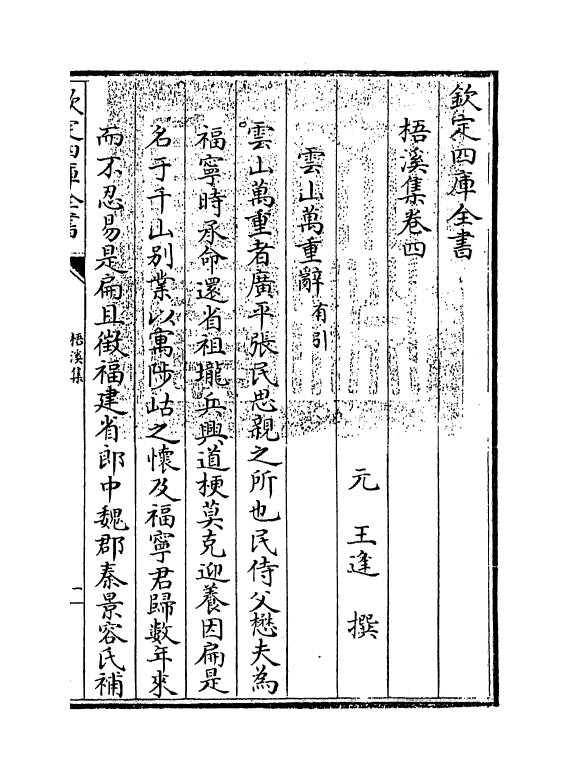 欽定四庫全書
梧溪集卷四
元　王逢　撰
雲山萬重辭有引
雲山萬重者廣平張民思親之所也民侍父懋夫為
福寧時承命還省祖壠兵興道梗莫克迎養因扁是
名于千山別業以寓陟岵之懷及福寧君歸數年來
而不忍易是扁且徵福建省郎中魏郡秦景容氏補
欽定四庫全書
梧溪集